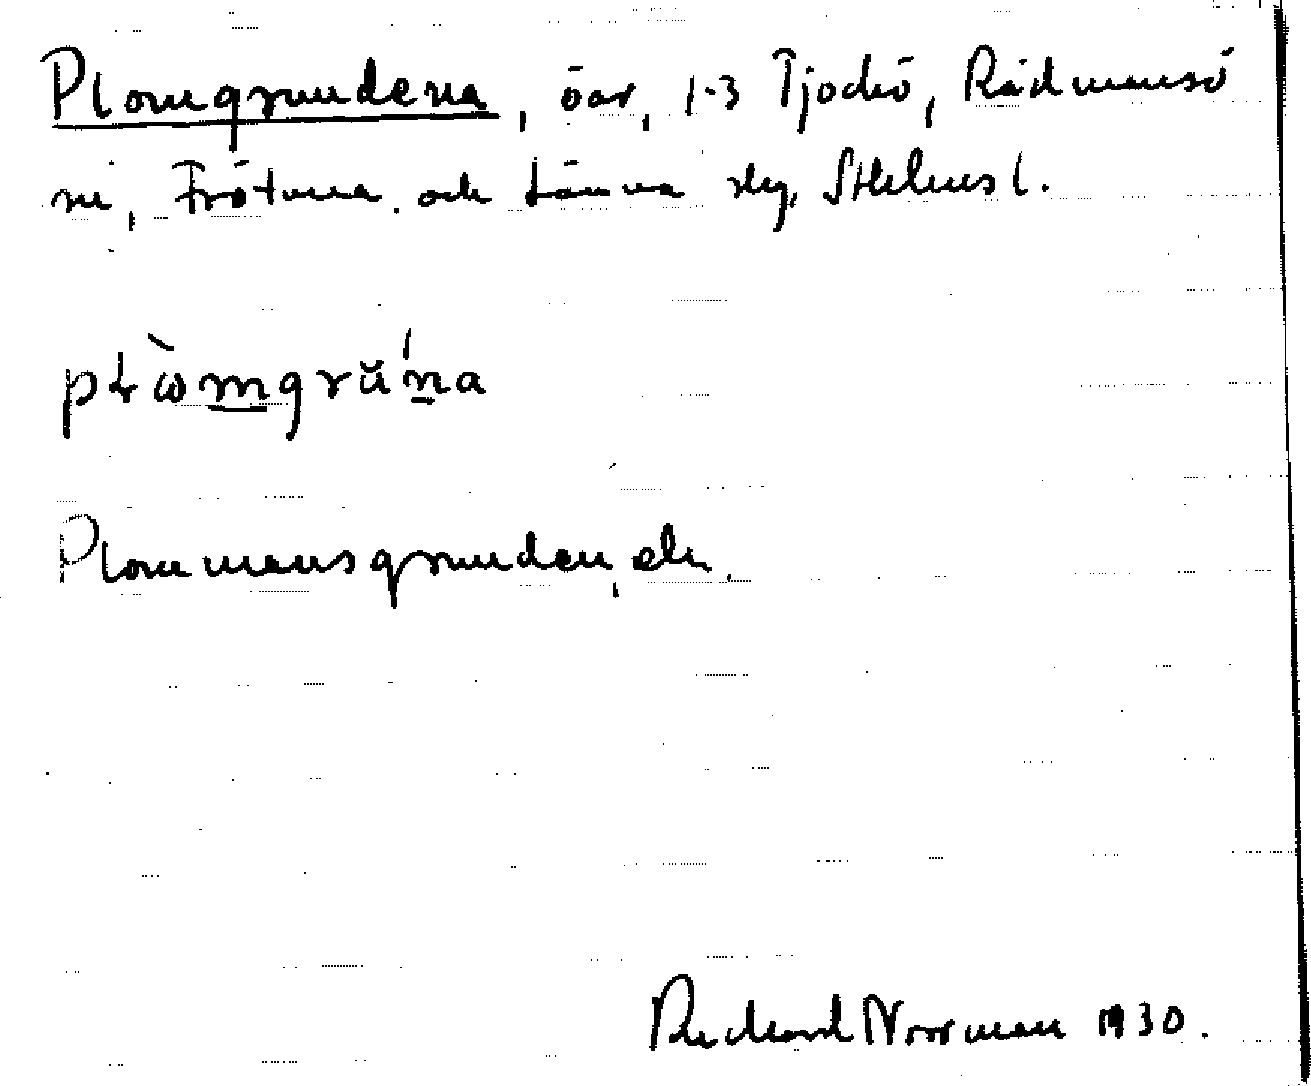 Plomgrundena, öar, 1-3 Tjockö, Rådmansö
sn, Frötuna och Länna skg, Sthlms l.
płὼmgrŭ́na
Plommansgrunden, ek.
Richard Norrman 1930.